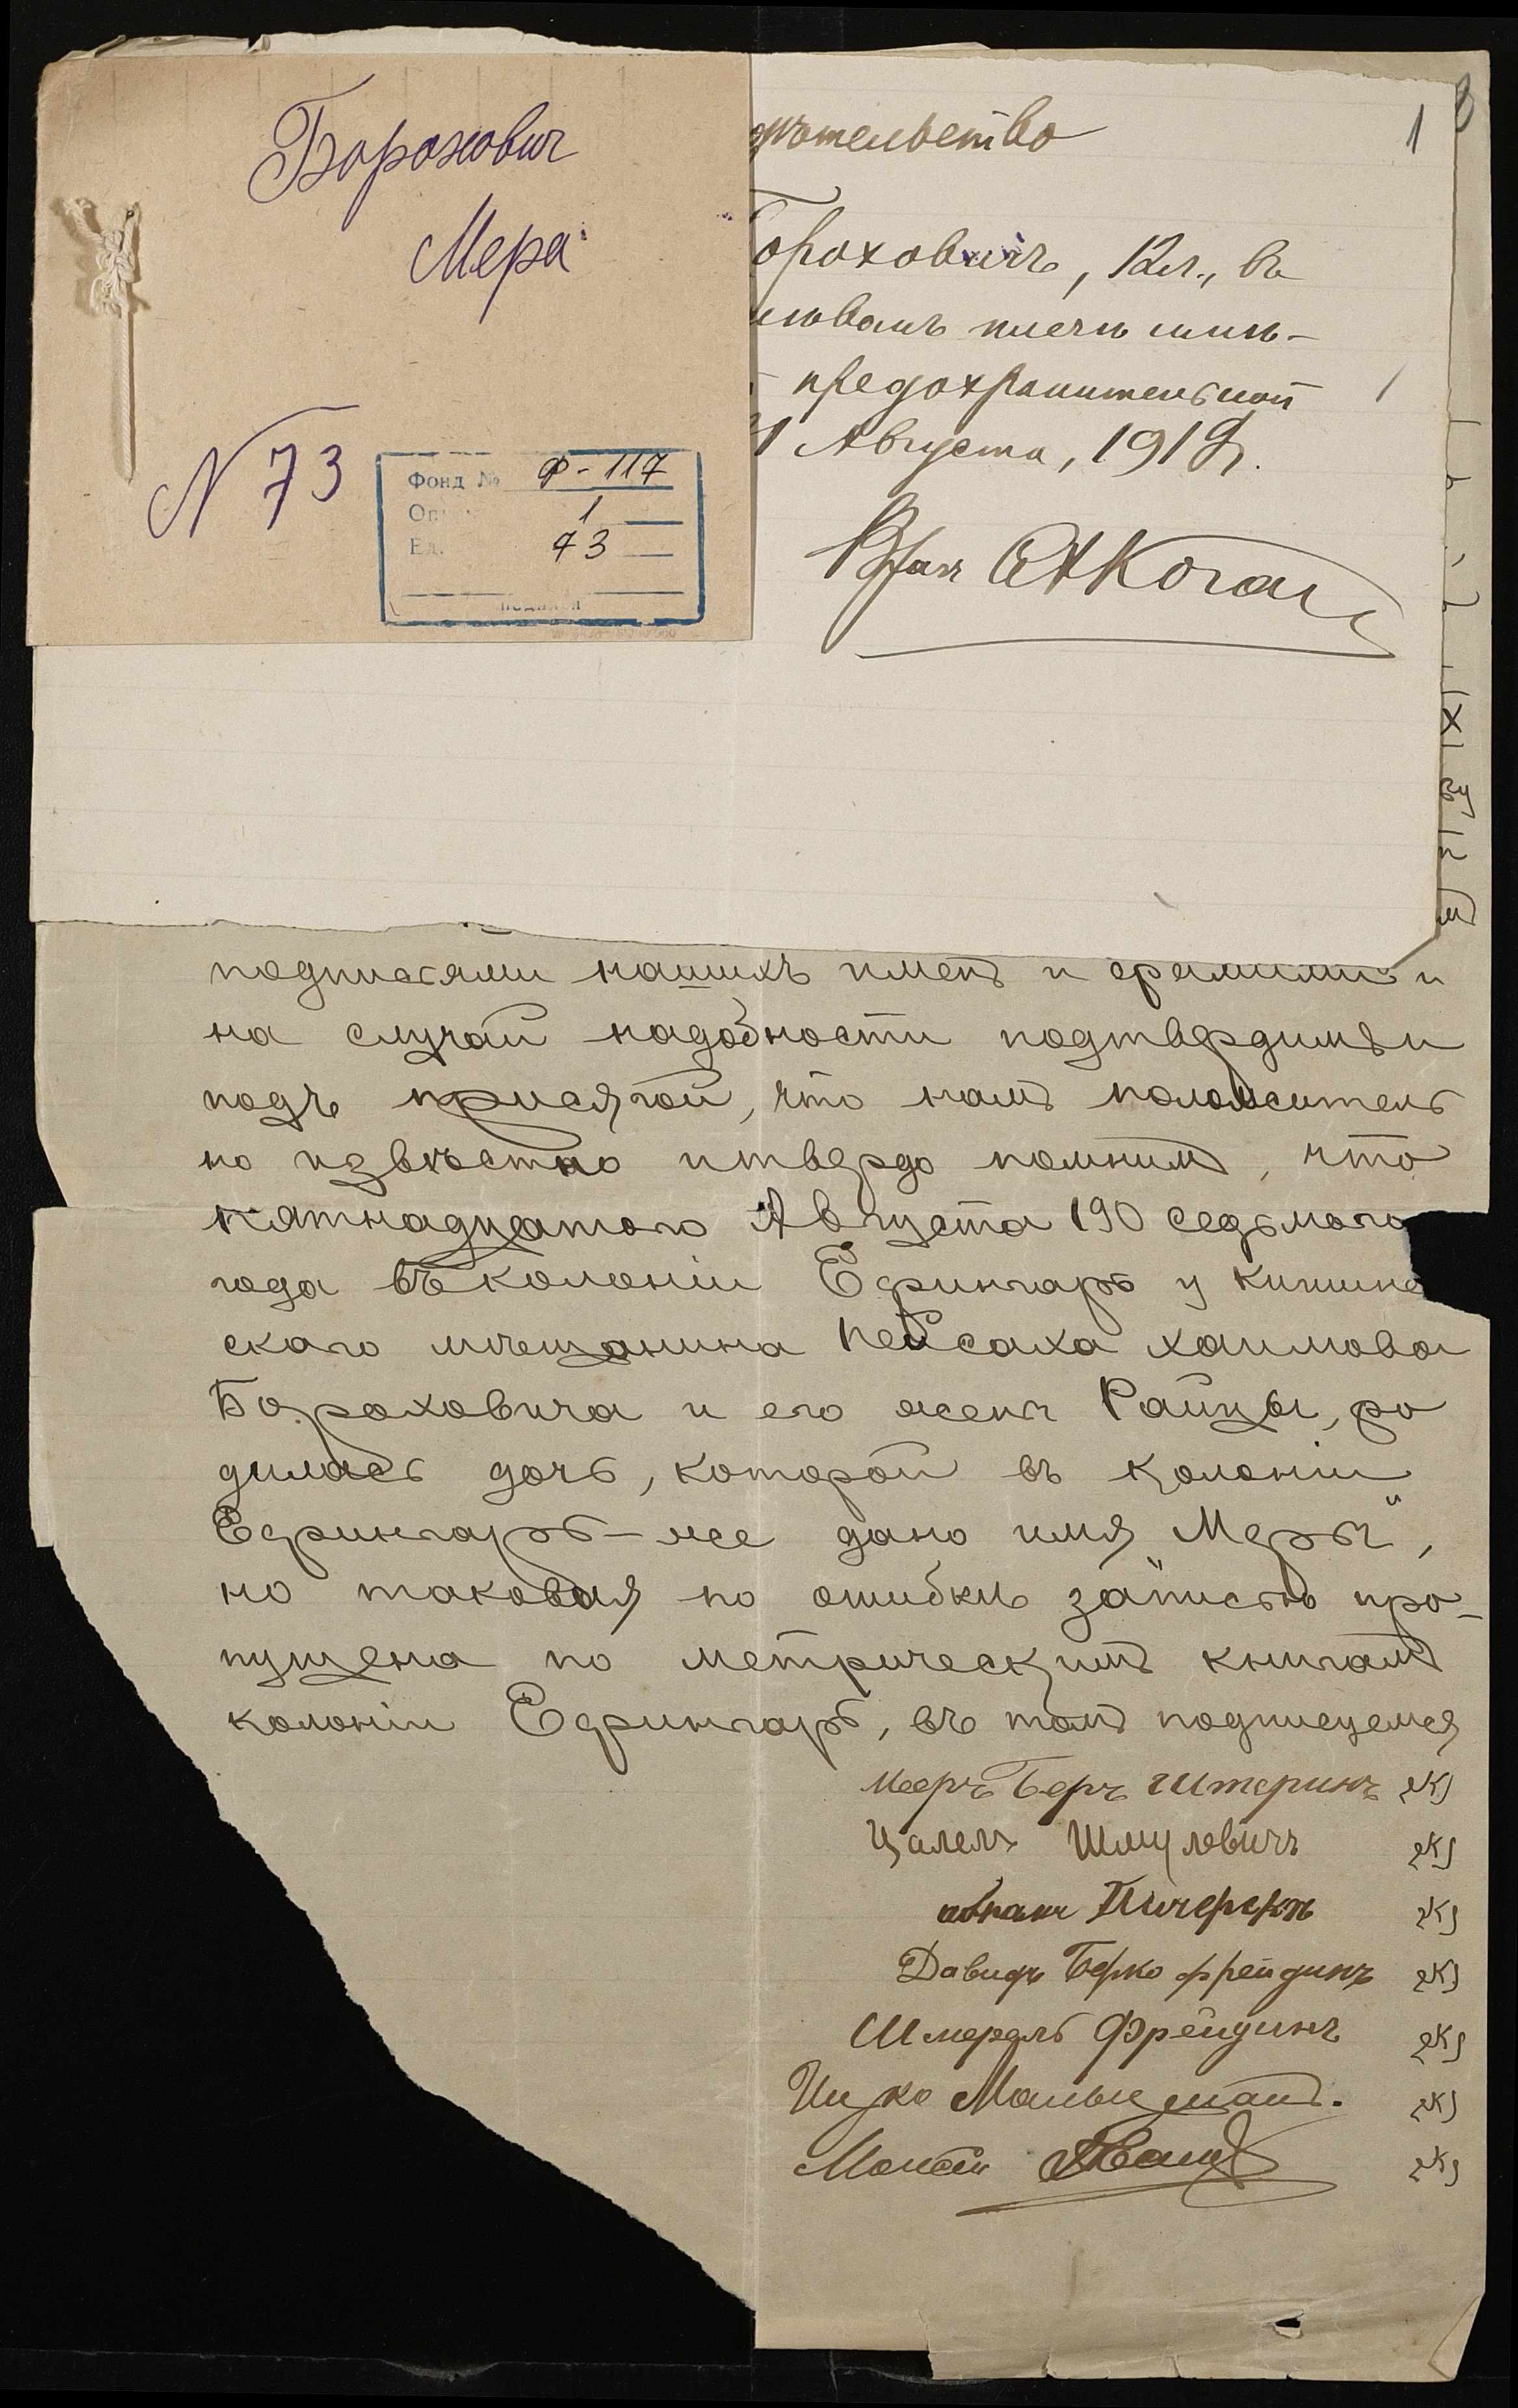 Борохович
Мера
N 73
Фонд № Ф-117
Оп. 1
Ед. 73
дѣтельство
1
Бороховичъ, 12 л., въ
предохранительной
Августа, 1919 г.
Врач А Коган
подписями нашихъ именъ и фамилий и
на случай надобности подтвердимъ и
подъ присягой, что намъ положитель
но извѣстно и твердо помнимъ, что
пятнадцатого Августа 190 седьмого
года въ колоніи Ефингарь у кишине
скаго мѣщанина Пейсаха Хаимова
Бороховича и его жены Райцы, ро
дилась дочь, которой въ колоніи
Ефингарь-же дано имя „Меры",
но таковая по ошибкѣ записью про-
пущена по метрическимъ книгамъ
колоніи Ефингарь, въ томъ подписуемся
Мееръ Беръ Штеринъ
Цалелъ Шмулевичъ
Давидъ Берко Фрейдинъ
Шмерель Фрейдинъ
Ицко